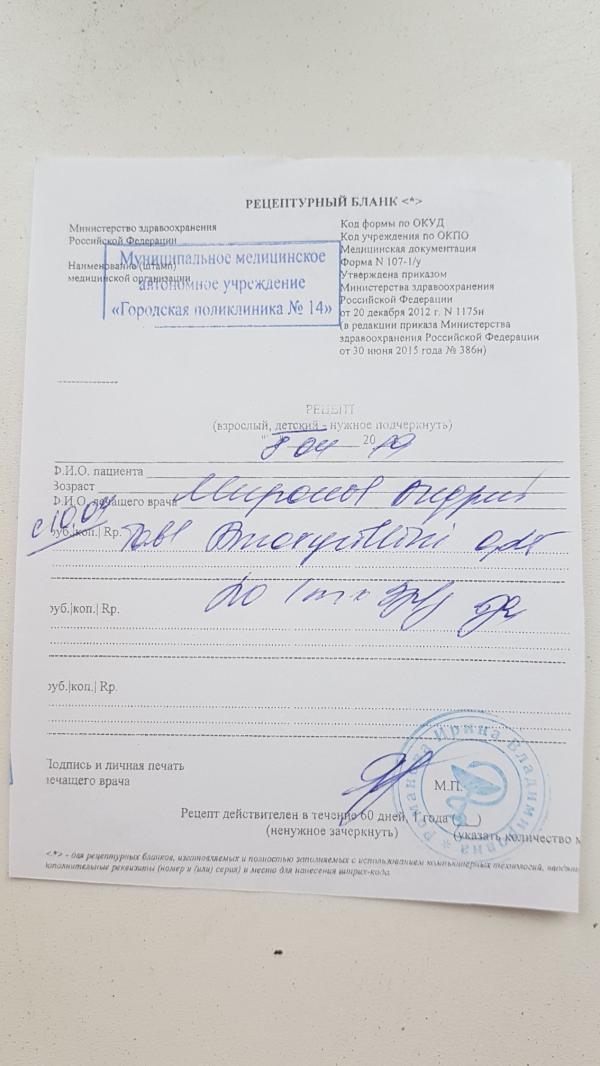 РЕЦЕПТУРНЫЙ БЛАНК <*>
Министерство здравоохранения
Российской Федерации
Наименование (штамп)
медицинской организации
Муниципальное медицинское
автономное учреждение
«Городская поликлиника № 14»
Код формы по ОКУД
Код учреждения по ОКПО
Медицинская документация
Форма N 107-1/у
Утверждена приказом
Министерства здравоохранения
Российской Федерации
от 20 декабря 2012 г. N 1175н
(в редакции приказа Министерства
здравоохранения Российской Федерации
от 30 июня 2015 года № 386н)
РЕЦЕПТ
(взрослый, детский - нужное подчеркнуть)
8 04 2019
Ф.И.О. пациента
Возраст
Ф.И.О. лечащего врача Миронов Андрей
с 10.04
руб.|коп.| Rp. Tabl
0,25
1 т х
руб.|коп.| Rp.
руб.|коп.| Rp.
Подпись и личная печать
лечащего врача
М.П.
Романова Ирина Владимировна
Рецепт действителен в течение 60 дней, 1 года (__)
(ненужное зачеркнуть) (указать количество м
<*> - для рецептурных бланков, изготовляемых и полностью заполняемых с использованием компьютерных технологий,
дополнительные реквизиты (номер и (или) серия) и место для нанесения штрих-кода.